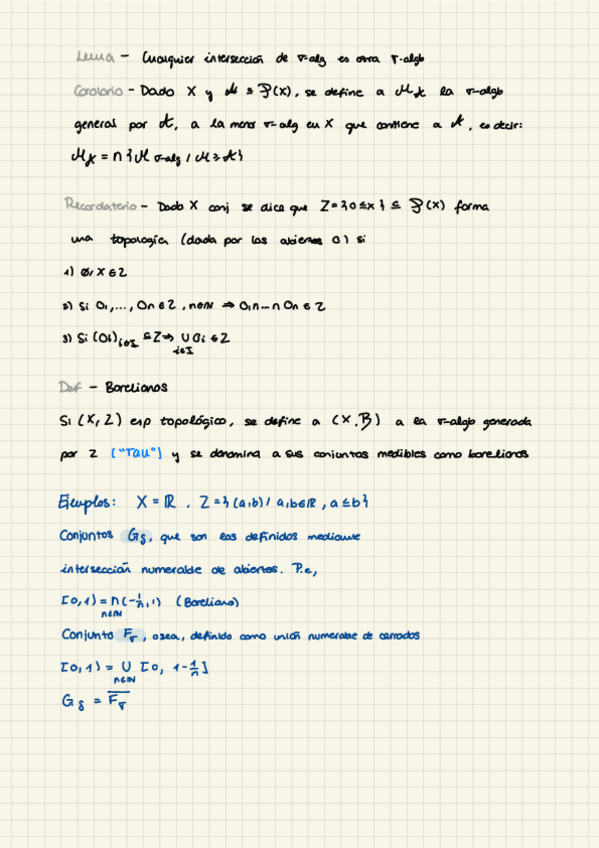 Lema - Cualquier intersección de σ-alg es otra σ-algb
Corolario - Dado X y A ⊆ P(X), se define a M_A la σ-algb
general por A, a la menor σ-alg en X que contiene a A, es decir:
M_A = ∩ {M σ-alg / M ⊇ A}
Recordatorio - Dado X conj se dice que Z = {O ⊆ X} ⊆ P(X) forma
una topología (dada por los abiertos O) si
1) Ø, X ∈ Z
2) Si O₁, ..., On ∈ Z, n∈N ⇒ O₁ ∩ ... ∩ On ∈ Z
3) Si (Oi)i∈I ⊆ Z ⇒ ∪ Oi ∈ Z
i∈I
Def - Borelianos
Si (X, Z) esp topológico, se define a (X, B) a la σ-algb generada
por Z ("Tau") y se denomina a sus conjuntos medibles como borelianos
Ejemplos: X = ℝ, Z = {(a,b) / a,b∈ℝ, a ≤ b}
Conjuntos Gδ, que son los definidos mediante
intersección numerable de abiertos. P.e,
[0,1) = ∩ (-1/n, 1) (Boreliano)
n∈N
Conjunto Fσ, osea, definido como unión numerable de cerrados
[0,1) = ∪ [0, 1-1/n]
n∈N
Gδ = F̅σ̅